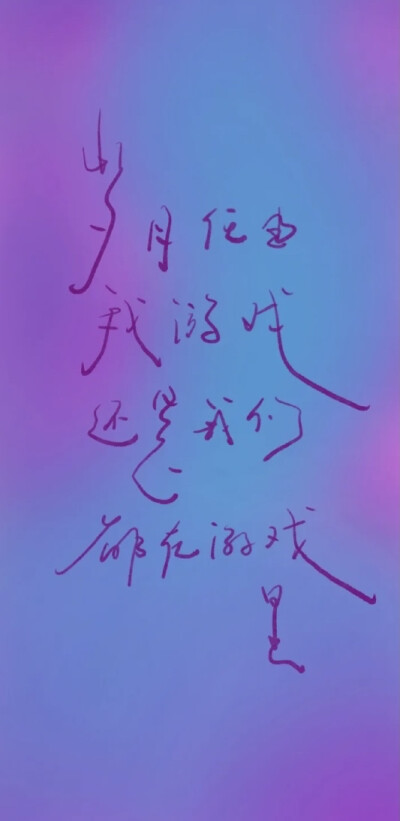 岁月任由
我游戏
还是我们
都在游戏
里